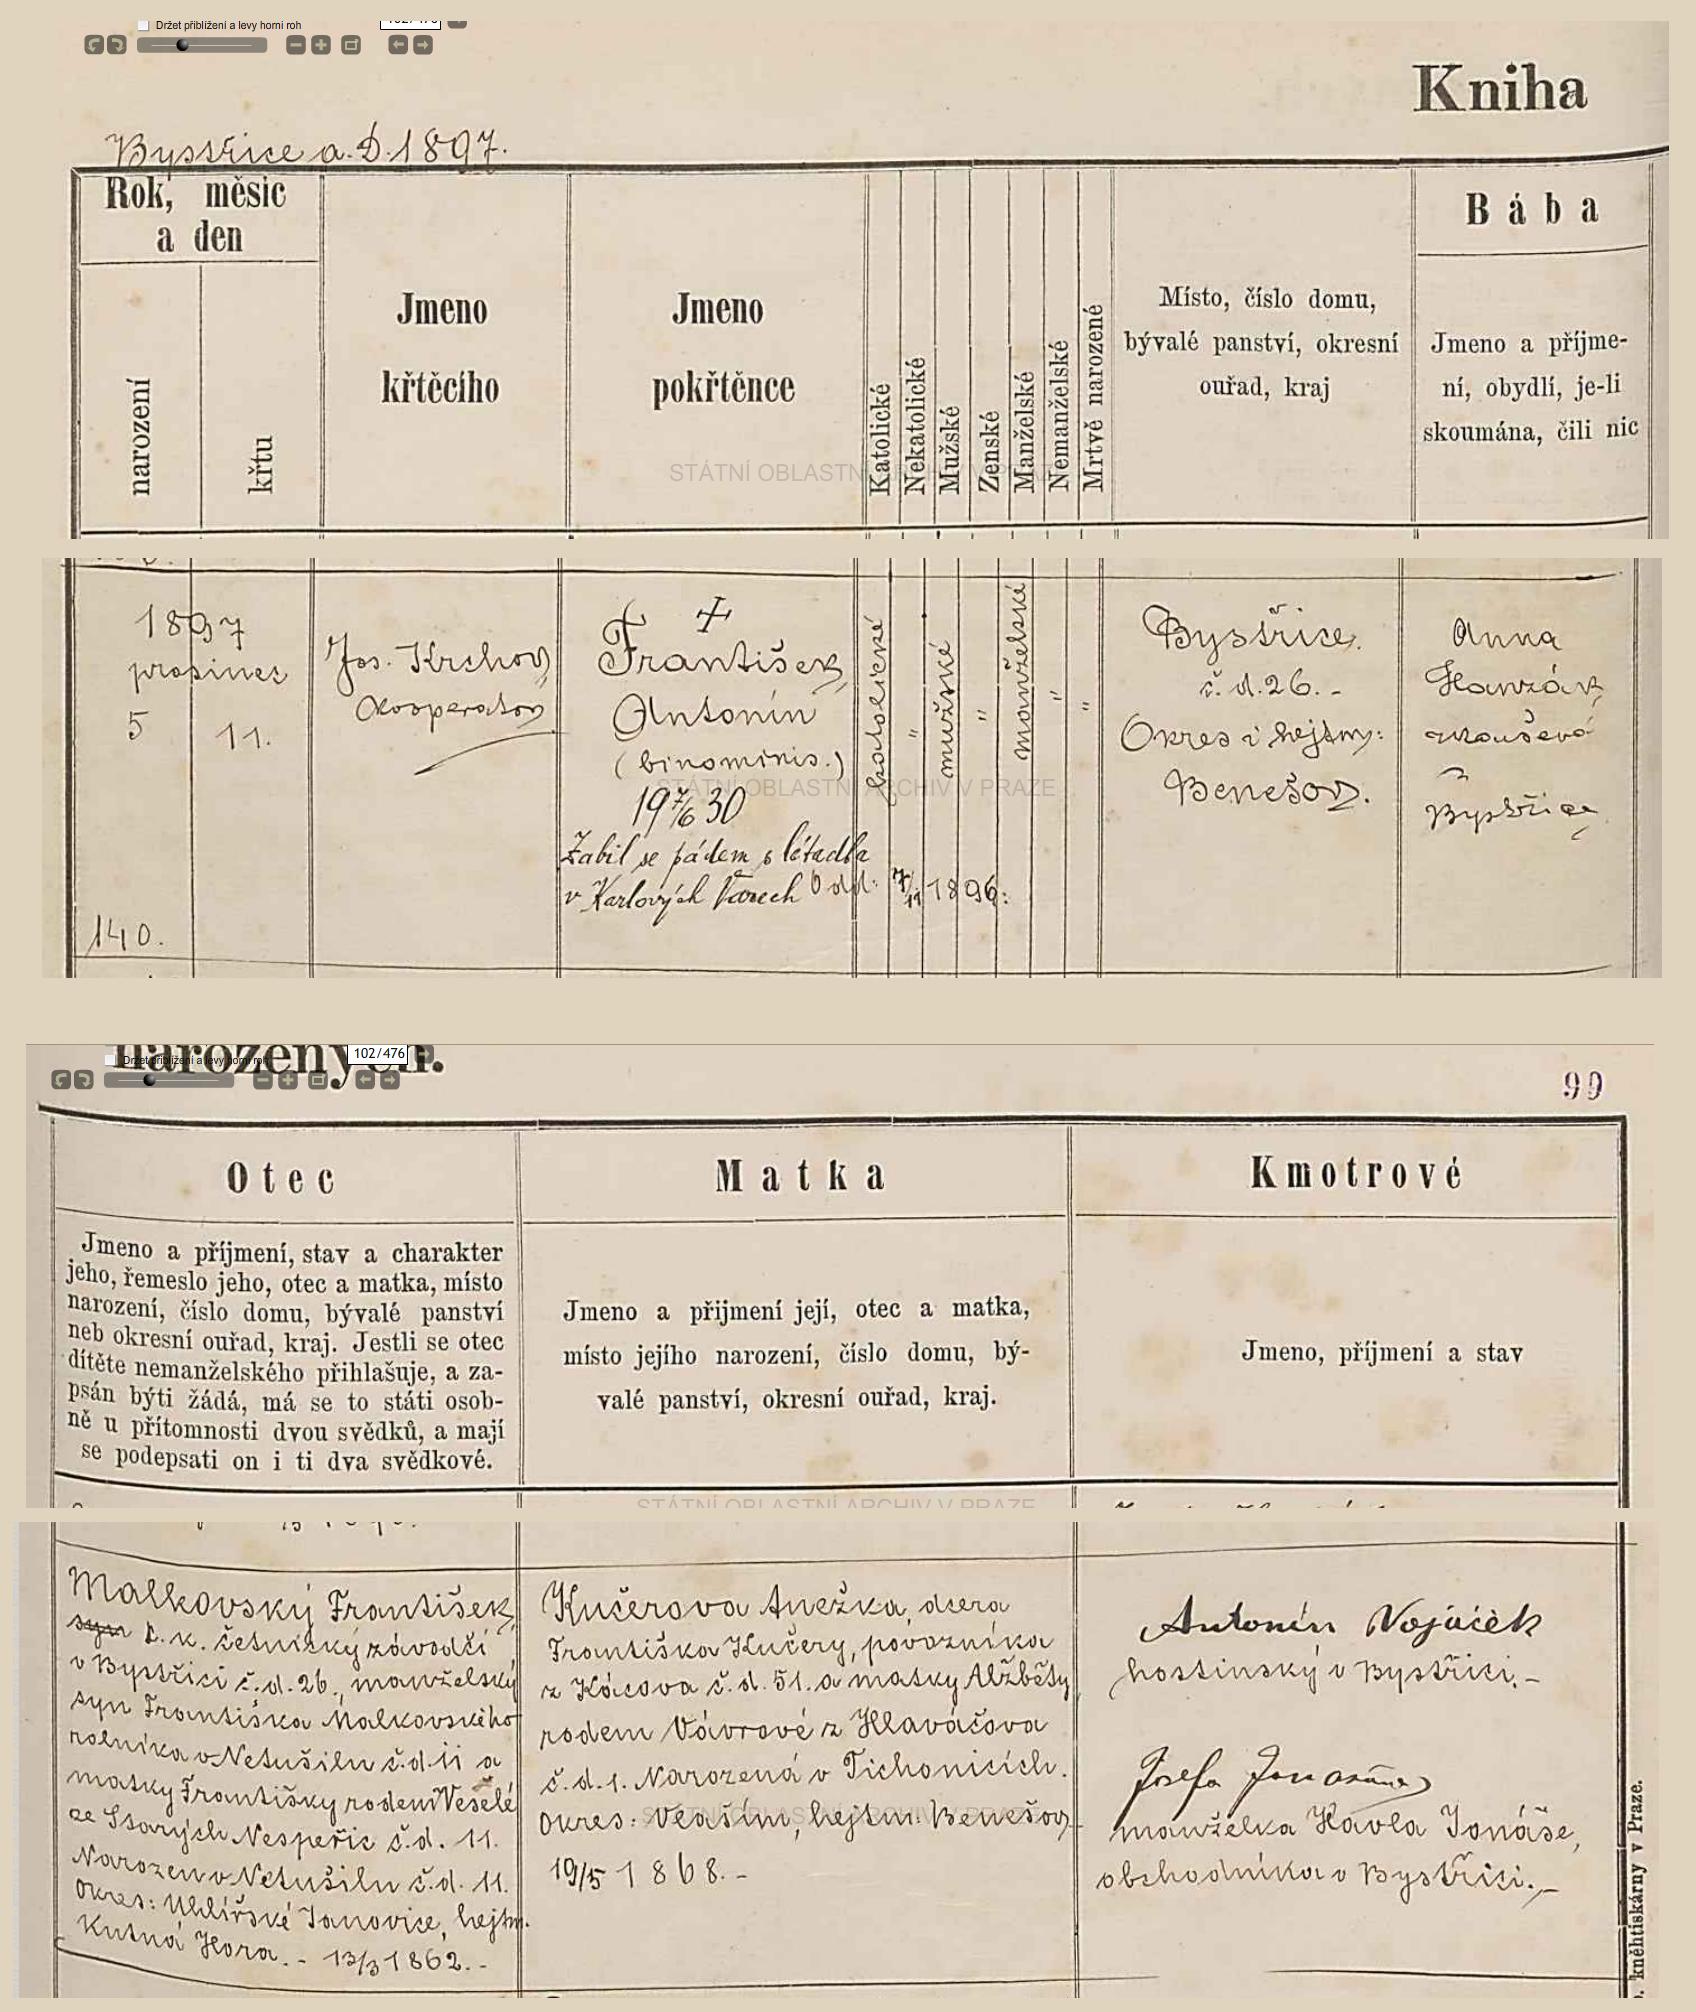 Držet přiblížení a levy horni roh
Kniha
Bystřice a. D. 1897.
Rok, měsíc
a den
narození
křtu
Jmeno
křtěcího
Jmeno
pokřtěnce
Katolické
Nekatolické
Mužské
Ženské
Manželské
Nemanželské
Mrtvě narozené
Místo, číslo domu,
bývalé panství, okresní
ouřad, kraj
Bába
Jmeno a příjme-
ní, obydlí, je-li
skoumána, čili nic
STÁTNÍ OBLASTNÍ ARCHIV V PRAZE
1897
prosinec
5
11.
140.
Jos. Krchov
kooperator
†
František
Antonín
(binominis.)
19 7/6 30
Zabil se pádem s létadla
v Karlových Varech Odd: 7/11 1896:
katolické
"
mužské
"
manželské
"
"
Bystřice
č. d. 26. -
Okres i hejtm:
Benešov.
Anna
zkoušená
z
Bystřice
STÁTNÍ OBLASTNÍ ARCHIV V PRAZE
narozených.
Držet přiblížení a levy horni roh
102/476
99
Otec
Jmeno a příjmení, stav a charakter
jeho, řemeslo jeho, otec a matka, místo
narození, číslo domu, bývalé panství
neb okresní ouřad, kraj. Jestli se otec
dítěte nemanželského přihlašuje, a za-
psán býti žádá, má se to státi osob-
ně u přítomnosti dvou svědků, a mají
se podepsati on i ti dva svědkové.
Matka
Jmeno a přijmení její, otec a matka,
místo jejího narození, číslo domu, bý-
valé panství, okresní ouřad, kraj.
Kmotrové
Jmeno, příjmení a stav
STÁTNÍ OBLASTNÍ ARCHIV V PRAZE
Malkovský František,
syn c. k. četnický závodčí
v Bystřici č. d. 26., manželský
syn Františka Malkovského
rolníka v Netušilu č. d. 11 a
matky Františky rodem Veselé
ze Starých Nespeřic č. d. 11.
Narozen v Netušilu č. d. 11.
Okres: Uhlířské Janovice, hejtm.
Kutná Hora. - 13/3 1862. -
Kučerova Anežka, dcera
Františka Kučery, povozníka
z Kácova č. d. 51. a matky Alžběty
rodem Vávrové z Hlaváčova
č. d. 1. Narozená v Tichonicích.
Okres: Vlaším, hejtm: Benešov
19/5 1868. -
Antonín Vojáček
hostinský v Bystřici. -
Josefa Jonášova
manželka Havla Jonáše,
obchodníka v Bystřici. -
STÁTNÍ OBLASTNÍ ARCHIV V PRAZE
kněhtiskárny v Praze.